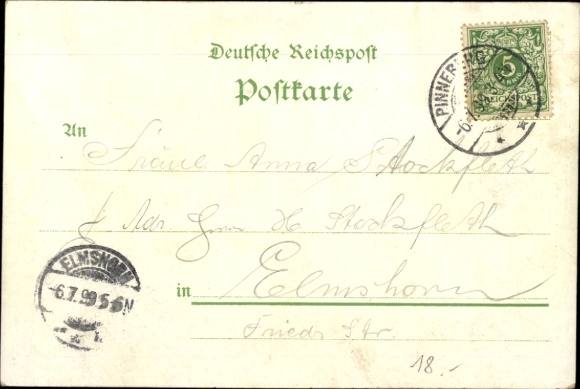 Deutsche Reichspost
Postkarte
PINNEBERG
5
REICHSPOST
An
Fräul. Anna Stockfleth
Adr Herrn H Stockfleth
in Elmshorn
Frieds Str.
ELMSHORN
6.7.99 5-6N
18.-